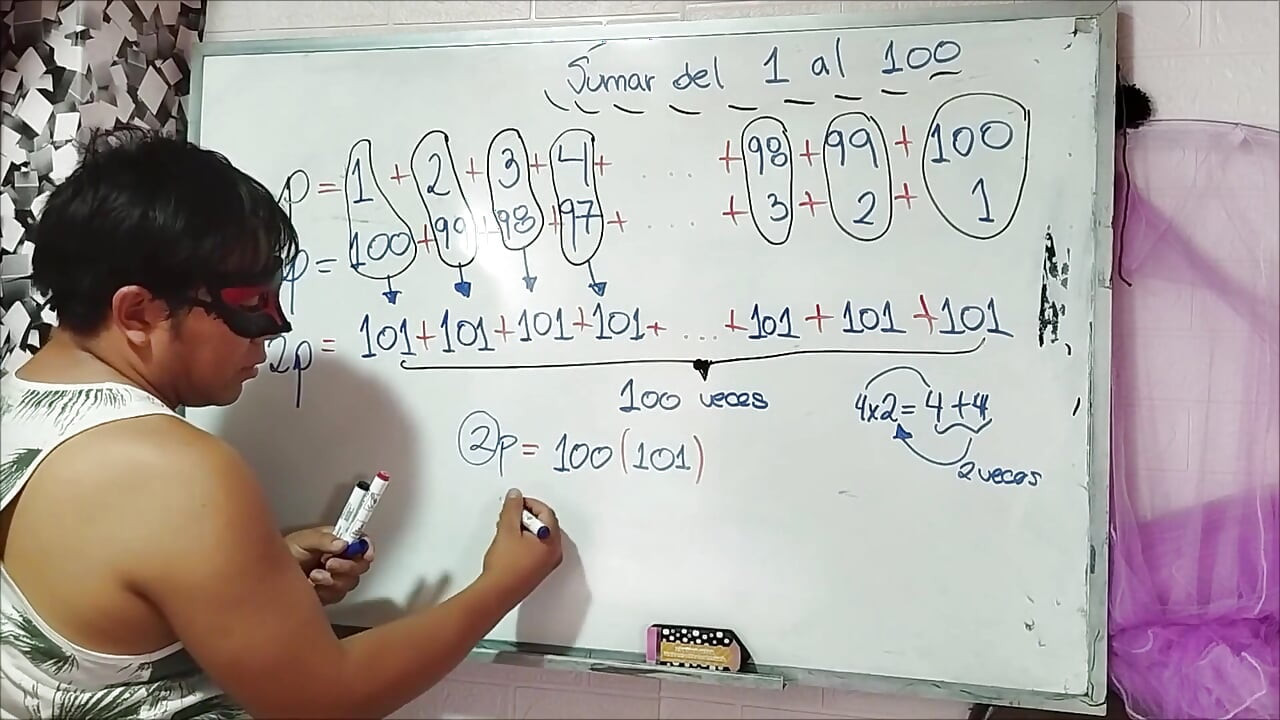 Sumar del 1 al 100
p = 1 + 2 + 3 + 4 + .... + 98 + 99 + 100
p = 100 + 99 + 98 + 97 + .... + 3 + 2 + 1
2p = 101 + 101 + 101 + 101 + ... + 101 + 101 + 101
100 veces
4x2 = 4 + 4
2 veces
2p = 100(101)